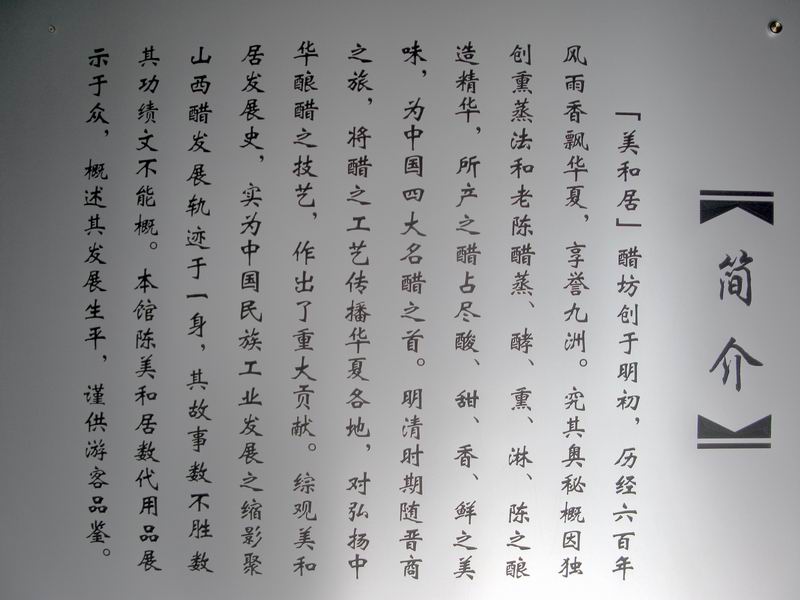 【简介】
「美和居」醋坊创于明初，历经六百年
风雨香飘华夏，享誉九洲。究其奥秘概因独
创熏蒸法和老陈醋蒸、酵、熏、淋、陈之酿
造精华，所产之醋占尽酸、甜、香、鲜之美
味，为中国四大名醋之首。明清时期随晋商
之旅，将醋之工艺传播华夏各地，对弘扬中
华酿醋之技艺，作出了重大贡献。综观美和
居发展史，实为中国民族工业发展之缩影聚
山西醋发展轨迹于一身，其故事数不胜数
其功绩文不能概。本馆陈美和居数代用品展
示于众，概述其发展生平，谨供游客品鉴。